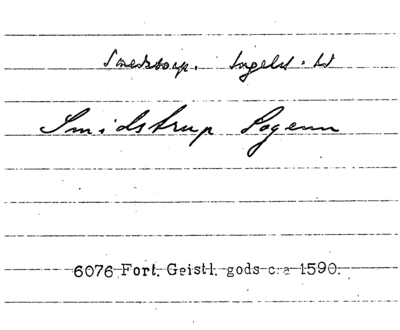 Smedstorp. Ingelst. hd
Smidstrup Sogenn
6076 Fort. Geistl. gods c:a 1590.